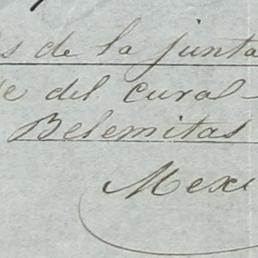 s de la junta
e del cural-
Belemitas
Mexi